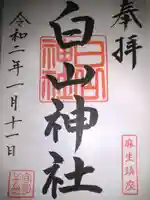 奉拝
白山神社
麻生鎮座
令和二年一月十一日